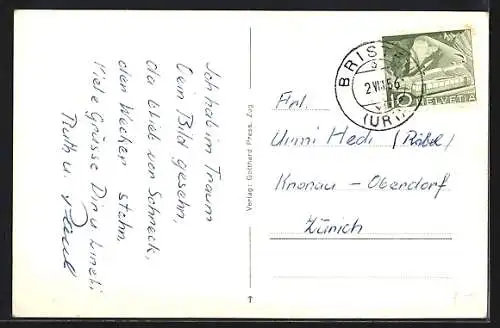 Ich hab im Traum
Dein Bild gesehn,
da blieb vor Schreck,
der Wecker stehn.
Viele Grüsse Dir u.
Ruth u. Paul
Verlag: Gotthard Press, Zug
BRIS
2.VIII.56
(URI)
10
HELVETIA
Frl.
Hedi (Räbel)
Knonau - Oberdorf
Zürich